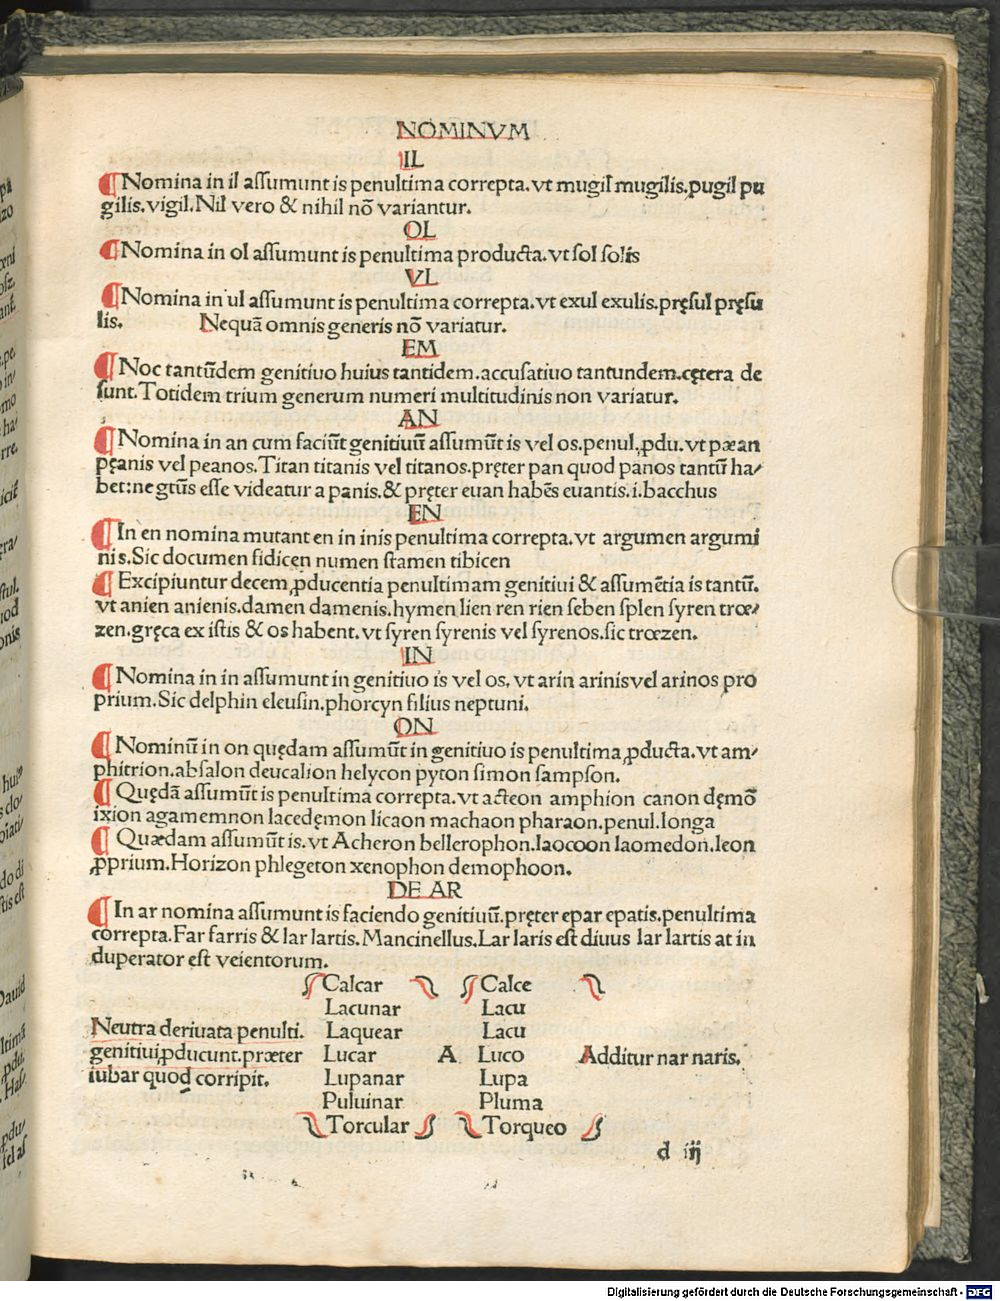 NOMINVM
IL
¶ Nomina in il aſſumunt is penultima correpta. vt mugil mugilis. pugil pu
gilis. vigil. Nil vero & nihil nō variantur.
OL
¶ Nomina in ol aſſumunt is penultima producta. vt ſol ſolis
VL
¶ Nomina in ul aſſumunt is penultima correpta. vt exul exulis. pręſul pręſu
lis. Nequā omnis generis nō variatur.
EM
¶ Noc tantūdem genitiuo huius tantidem. accuſatiuo tantundem. cętera de
ſunt. Totidem trium generum numeri multitudinis non variatur.
AN
¶ Nomina in an cum faciūt genitiuū aſſumūt is vel os. penul. ꝓdu. vt pæan
pęanis vel peanos. Titan titanis vel titanos. pręter pan quod panos tantū ha/
bet: ne gtūs eſſe videatur a panis. & pręter euan habēs euantis. i. bacchus
EN
¶ In en nomina mutant en in inis penultima correpta. vt argumen argumi
nis. Sic documen fidicen numen ſtamen tibicen
¶ Excipiuntur decem ꝓducentia penultimam genitiui & aſſumētia is tantū.
vt anien anienis. damen damenis. hymen lien ren rien ſeben ſplen ſyren trœ/
zen. gręca ex iſtis & os habent. vt ſyren ſyrenis vel ſyrenos. ſic trœzen.
IN
¶ Nomina in in aſſumunt in genitiuo is vel os, vt arin arinis vel arinos pro
prium. Sic delphin eleuſin. phorcyn filius neptuni.
ON
¶ Nominū in on quędam aſſumūt in genitiuo is penultima ꝓducta. vt am/
phitrion. abſalon deucalion helycon pyton ſimon ſampſon.
¶ Quędā aſſumūt is penultima correpta. vt acteon amphion canon dęmō
ixion agamemnon lacedęmon licaon machaon pharaon. penul. longa
¶ Quædam aſſumūt is. vt Acheron bellerophon. laocoon laomedon. leon
ꝓprium. Horizon phlegeton xenophon demophoon.
DE AR
¶ In ar nomina aſſumunt is faciendo genitiuū. pręter epar epatis. penultima
correpta. Far farris & lar lartis. Mancinellus. Lar laris eſt diuus lar lartis at in
duperator eſt veientorum.
Calcar Calce
Lacunar Lacu
Neutra deriuata penulti. Laquear Lacu
genitiui ꝓducunt. præter Lucar A Luco Additur nar naris.
iubar quod corripit. Lupanar Lupa
Puluinar Pluma
Torcular Torqueo
d iij
Digitalisierung gefördert durch die Deutsche Forschungsgemeinschaft - DFG